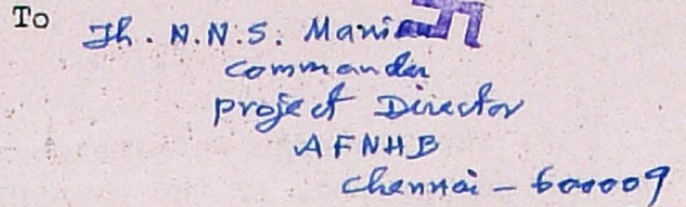 To Th. N.N.S. Mani
Commander
Project Director
AFNHB
Chennai - 600009